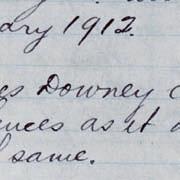 ary 1912.
es Downey c
ences as it a
f same.